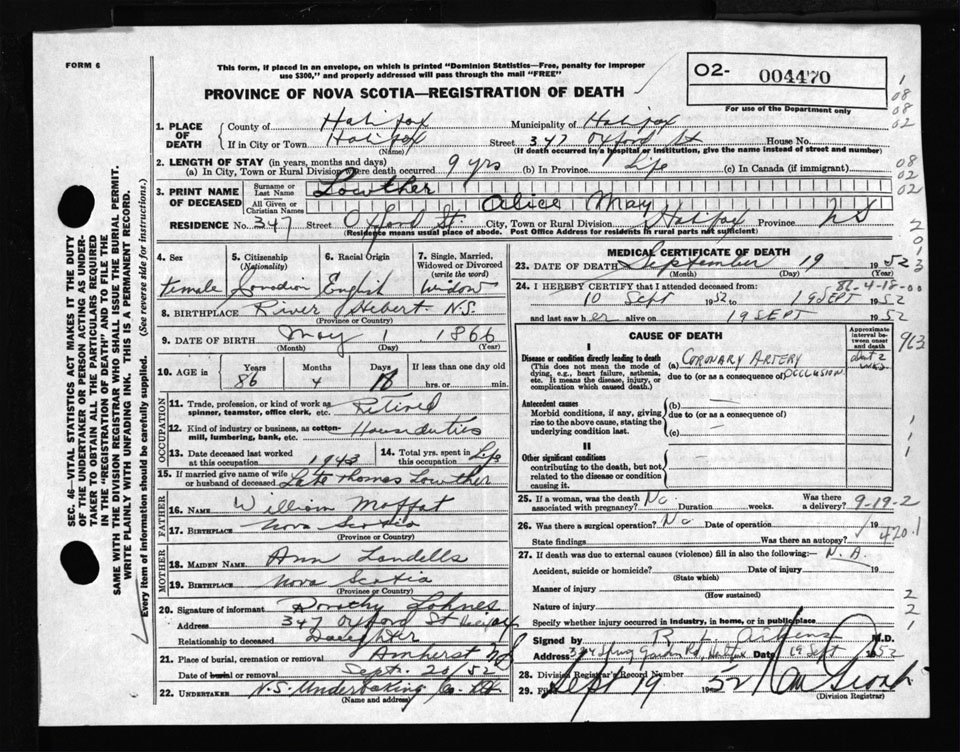 FORM 6
This form, if placed in an envelope, on which is printed "Dominion Statistics—Free, penalty for improper
use $300," and properly addressed will pass through the mail "FREE"
PROVINCE OF NOVA SCOTIA—REGISTRATION OF DEATH
02- 004470
For use of the Department only
1
08
08
02
1. PLACE OF DEATH
County of Halifax Municipality of Halifax
If in City or Town Halifax Street 347 Oxford St House No.
(Name) (If death occurred in a hospital or institution, give the name instead of street and number)
2. LENGTH OF STAY (in years, months and days)
(a) In City, Town or Rural Division where death occurred 9 yrs (b) In Province Life (c) In Canada (if immigrant)
08
02
02
3. PRINT NAME OF DECEASED
Surname or Last Name Lowther
All Given or Christian Names Alice May
RESIDENCE No. 347 Street Oxford St. City, Town or Rural Division Halifax Province N S
(Residence means usual place of abode. Post Office Address for residents in rural parts not sufficient)
SEC. 46—VITAL STATISTICS ACT MAKES IT THE DUTY
OF THE UNDERTAKER OR PERSON ACTING AS UNDER-
TAKER TO OBTAIN ALL THE PARTICULARS REQUIRED
IN THE "REGISTRATION OF DEATH" AND TO FILE THE
SAME WITH THE DIVISION REGISTRAR WHO SHALL ISSUE THE BURIAL PERMIT.
WRITE PLAINLY WITH UNFADING INK. THIS IS A PERMANENT RECORD.
Every item of information should be carefully supplied. (See reverse side for instructions.)
4. Sex 5. Citizenship (Nationality) 6. Racial Origin 7. Single, Married, Widowed or Divorced (write the word)
Female Canadian English Widow
8. BIRTHPLACE River Hebert N.S.
(Province or Country)
9. DATE OF BIRTH May 1 1866
(Month) (Day) (Year)
10. AGE in Years Months Days If less than one day old
86 4 18 hrs. or min.
OCCUPATION
11. Trade, profession, or kind of work as
spinner, teamster, office clerk, etc. Retired
12. Kind of industry or business, as cotton-
mill, lumbering, bank, etc. House duties
13. Date deceased last worked
at this occupation 1943
14. Total yrs. spent in
this occupation Life
15. If married give name of wife
or husband of deceased Late Thomas Lowther
FATHER
16. NAME William Moffat
17. BIRTHPLACE Nova Scotia
(Province or Country)
MOTHER
18. MAIDEN NAME Ann Landells
19. BIRTHPLACE Nova Scotia
(Province or Country)
20. Signature of informant Dorothy Lohnes
Address 347 Oxford St Halifax
Relationship to deceased Daughter
21. Place of burial, cremation or removal Amherst N S
Date of burial or removal Sept. 20/52
22. UNDERTAKER N.S. Undertaking Co. Ltd.
(Name and address)
MEDICAL CERTIFICATE OF DEATH
23. DATE OF DEATH September 19 1952
(Month) (Day) (Year)
24. I HEREBY CERTIFY that I attended deceased from: 86-4-18-00
10 Sept 1952 to 19 SEPT 1952
and last saw her alive on 19 SEPT 1952
CAUSE OF DEATH
Approximate interval between onset and death
I
Disease or condition directly leading to death
(This does not mean the mode of
dying, e.g., heart failure, asthenia,
etc. It means the disease, injury, or
complication which caused death.)
(a) CORONARY ARTERY
due to (or as a consequence of) OCCLUSION
about 2 wks.
963
Antecedent causes
Morbid conditions, if any, giving
rise to the above cause, stating the
underlying condition last.
(b) —
due to (or as a consequence of)
(c) —
II
Other significant conditions
contributing to the death, but not
related to the disease or condition
causing it.
25. If a woman, was the death
associated with pregnancy? No Duration weeks. Was there a delivery? 9-19-2
26. Was there a surgical operation? No Date of operation 19
State findings Was there an autopsy? 420.1
27. If death was due to external causes (violence) fill in also the following:— N.A.
Accident, suicide or homicide? Date of injury 19
(State which)
Manner of injury
(How sustained)
Nature of injury
Specify whether injury occurred in industry, in home, or in public place
Signed by M.D.
Address Spring Garden Rd, Halifax Date 19 Sept 1952
28. Division Registrar's Record Number
29. Filed Sept 19 1952
(Division Registrar)